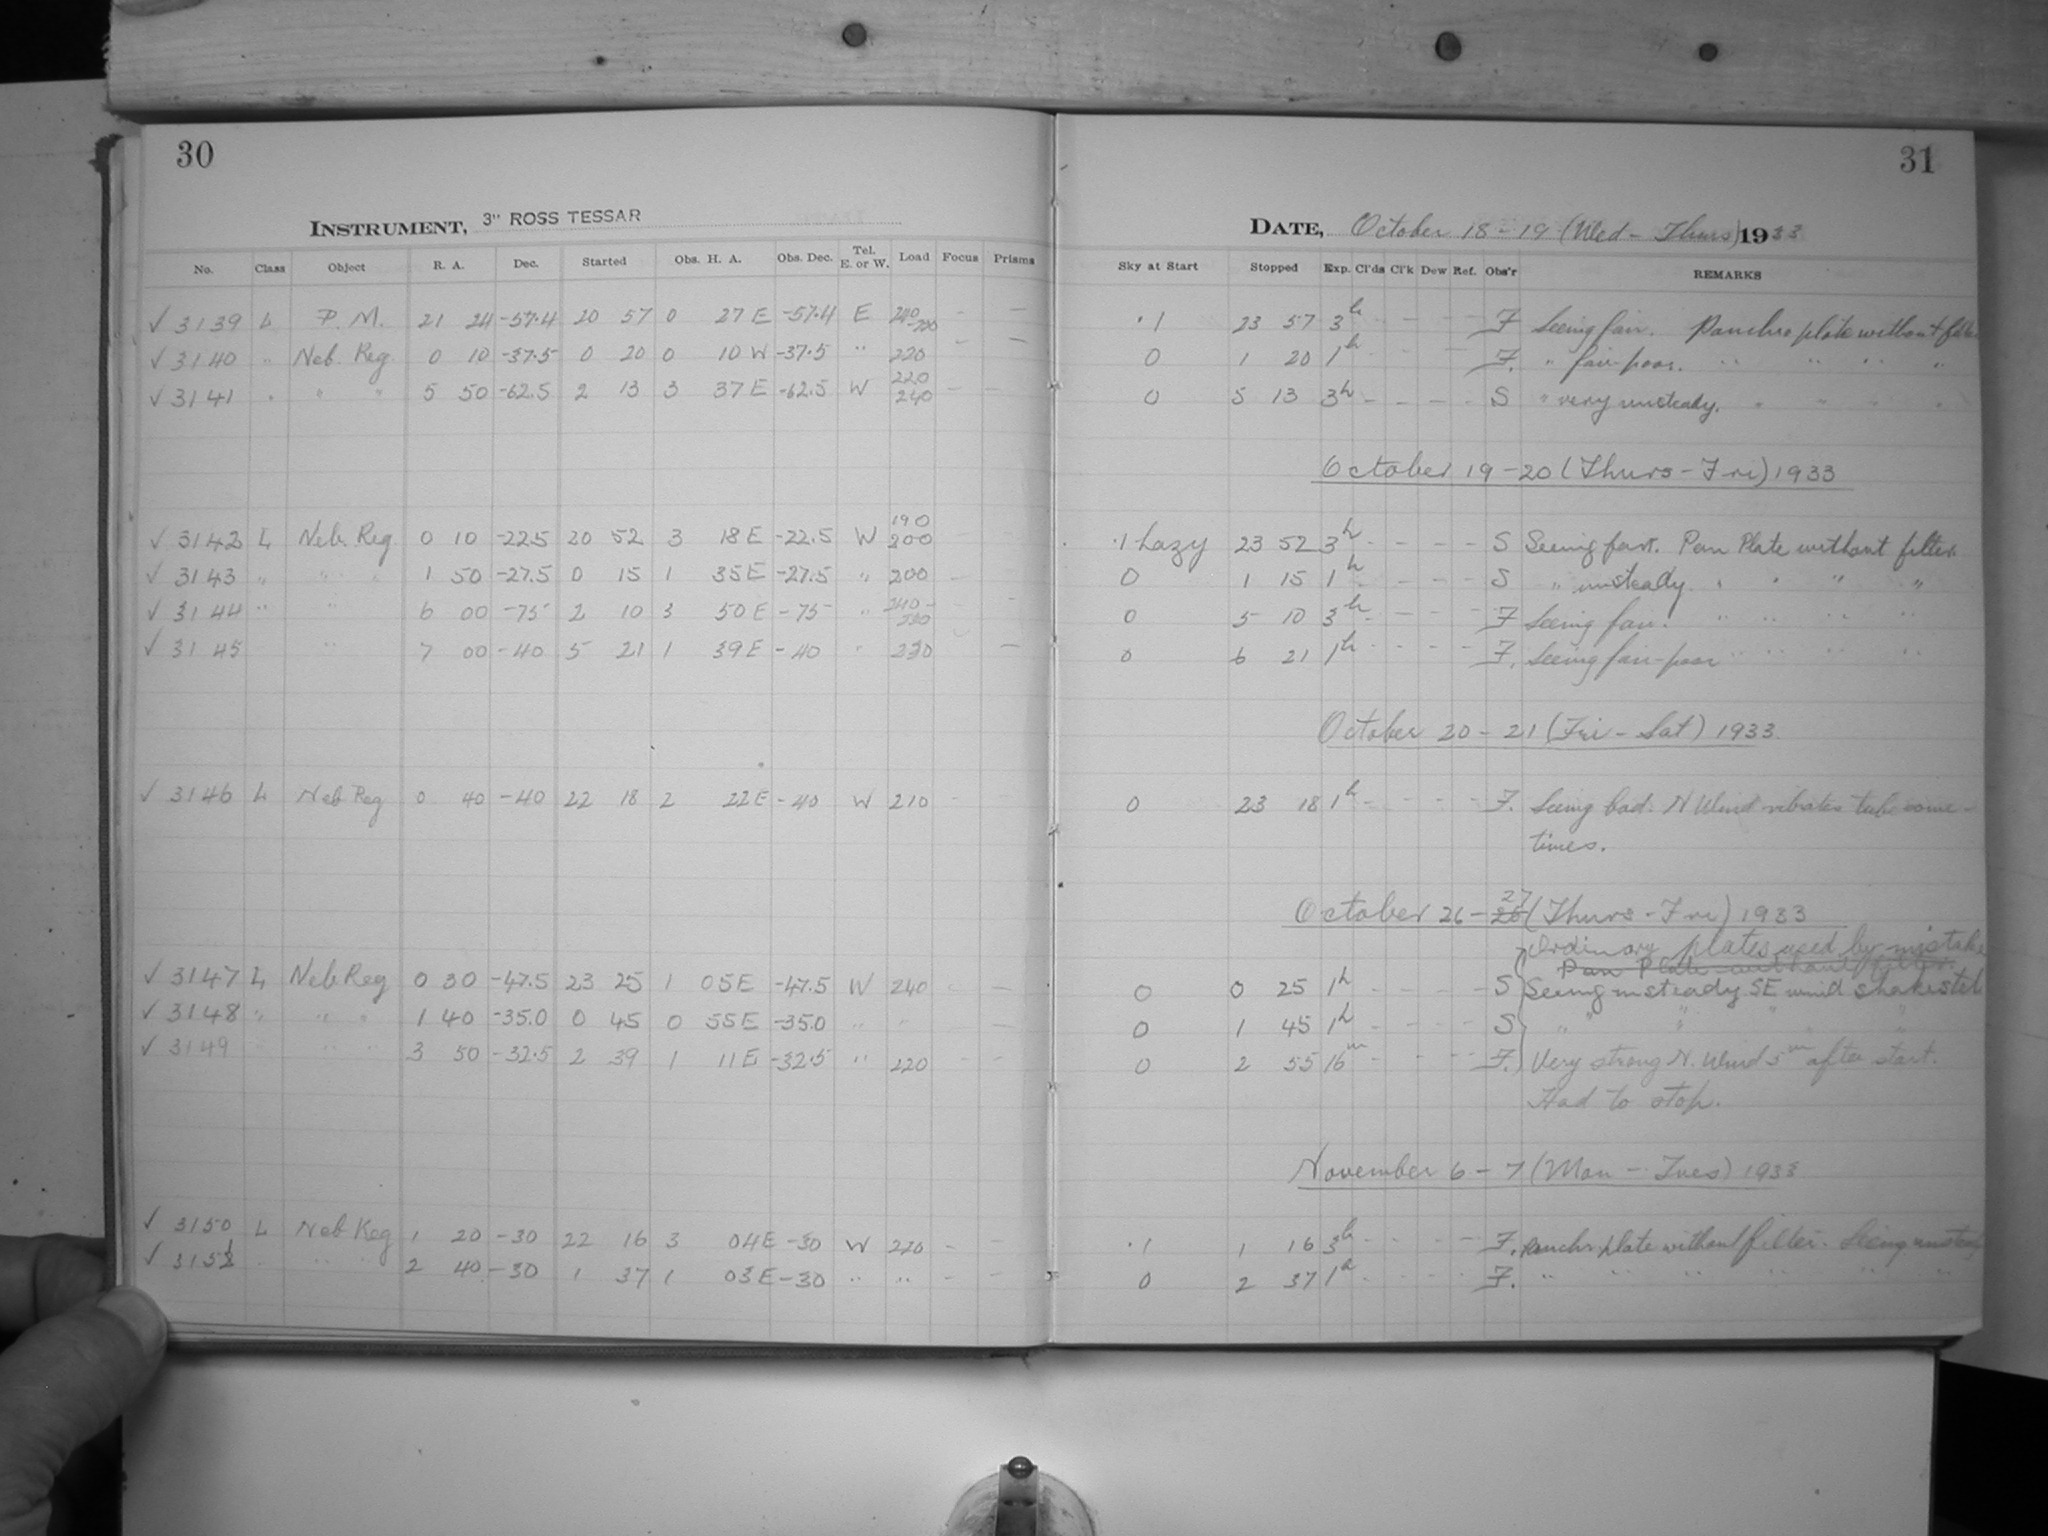 30
31
INSTRUMENT, 3" ROSS TESSAR
DATE, October 18-19 (Wed - Thurs) 1933
No. Class Object R. A. Dec. Started Obs. H. A. Obs. Dec. Tel. E. or W. Load Focus Prisms Sky at Start Stopped Exp. Cl'ds Cl'k Dew Ref. Obs'r REMARKS
✓ 3139 L P. M. 21 24 -57.4 20 57 0 27 E -57.4 E 240-200 - - .1 23 57 3h - - - - F Seeing fair. Panchro plate without
✓ 3140 " Neb. Reg. 0 10 -37.5 0 20 0 10 W -37.5 " 220 - - 0 1 20 1h - - - - F. " fair-poor. " " " "
✓ 3141 " " " 5 50 -62.5 2 13 3 37 E -62.5 W 220 240 - - 0 5 13 3h - - - - S " very unsteady. " " " "
October 19-20 (Thurs-Fri) 1933
✓ 3142 L Neb. Reg. 0 10 -22.5 20 52 3 18 E -22.5 W 190 200 .1 hazy 23 52 3h - - - - S Seeing fair. Pan Plate without filter.
✓ 3143 " " " 1 50 -27.5 0 15 1 35 E -27.5 " 200 - 0 1 15 1h - - - - S " unsteady. " " " "
✓ 3144 " " 6 00 -75 2 10 3 50 E -75 " 240- - - 0 5 10 3h - - - - F Seeing fair. " " " "
✓ 3145 " 7 00 -40 5 21 1 39 E -40 " 230 - - 0 6 21 1h - - - - F. Seeing fair-poor " " " "
October 20-21 (Fri-Sat) 1933.
✓ 3146 L Neb Reg 0 40 -40 22 18 2 22 E -40 W 210 - - 0 23 18 1h - - - - F. Seeing bad. N Wind vibrates tube some-
times.
October 26-27 (Thurs-Fri) 1933
Ordinary plates used by mistake
Pan Plate without filter
✓ 3147 L Neb Reg 0 30 -47.5 23 25 1 05 E -47.5 W 240 - - 0 0 25 1h - - - - S Seeing unsteady SE wind shakes tel
✓ 3148 " " " 1 40 -35.0 0 45 0 55 E -35.0 " " - 0 1 45 1h - - - - S " " " " "
✓ 3149 " " 3 50 -32.5 2 39 1 11 E -32.5 " 220 - - 0 2 55 16m - - - - F. Very strong N. Wind 5m after start.
Had to stop.
November 6-7 (Mon - Tues) 1933
✓ 3150 L Neb Reg 1 20 -30 22 16 3 04 E -30 W 220 - - .1 1 16 3h - - - - F. Panchr plate without filter. Seeing unsteady
✓ 3151 " " " 2 40 -30 1 37 1 03 E -30 " " - - 0 2 37 1h - - - - F. " " " " " " "